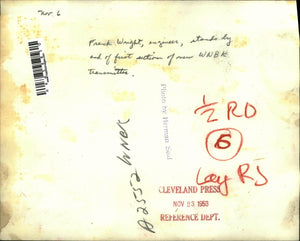 Nov 6
Frank Wright, engineer, stands by
end of first section of new WNBK
transmitter.
Photo by Herman Seid
1/2 RO
6
Leg RJ
A2552 WNBK
CLEVELAND PRESS
NOV 23 1953
REFERENCE DEPT.